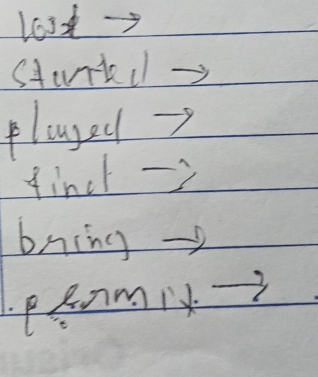 lost →
started →
played →
find →
bring →
permit →